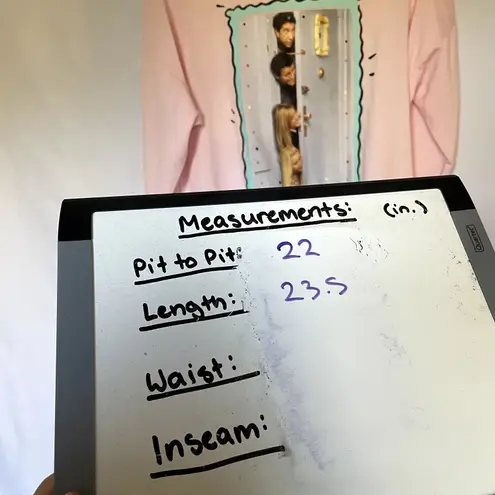 Measurements: (in.)
Pit to Pit: 22
Length: 23.5
Waist:
Inseam:
Quartet